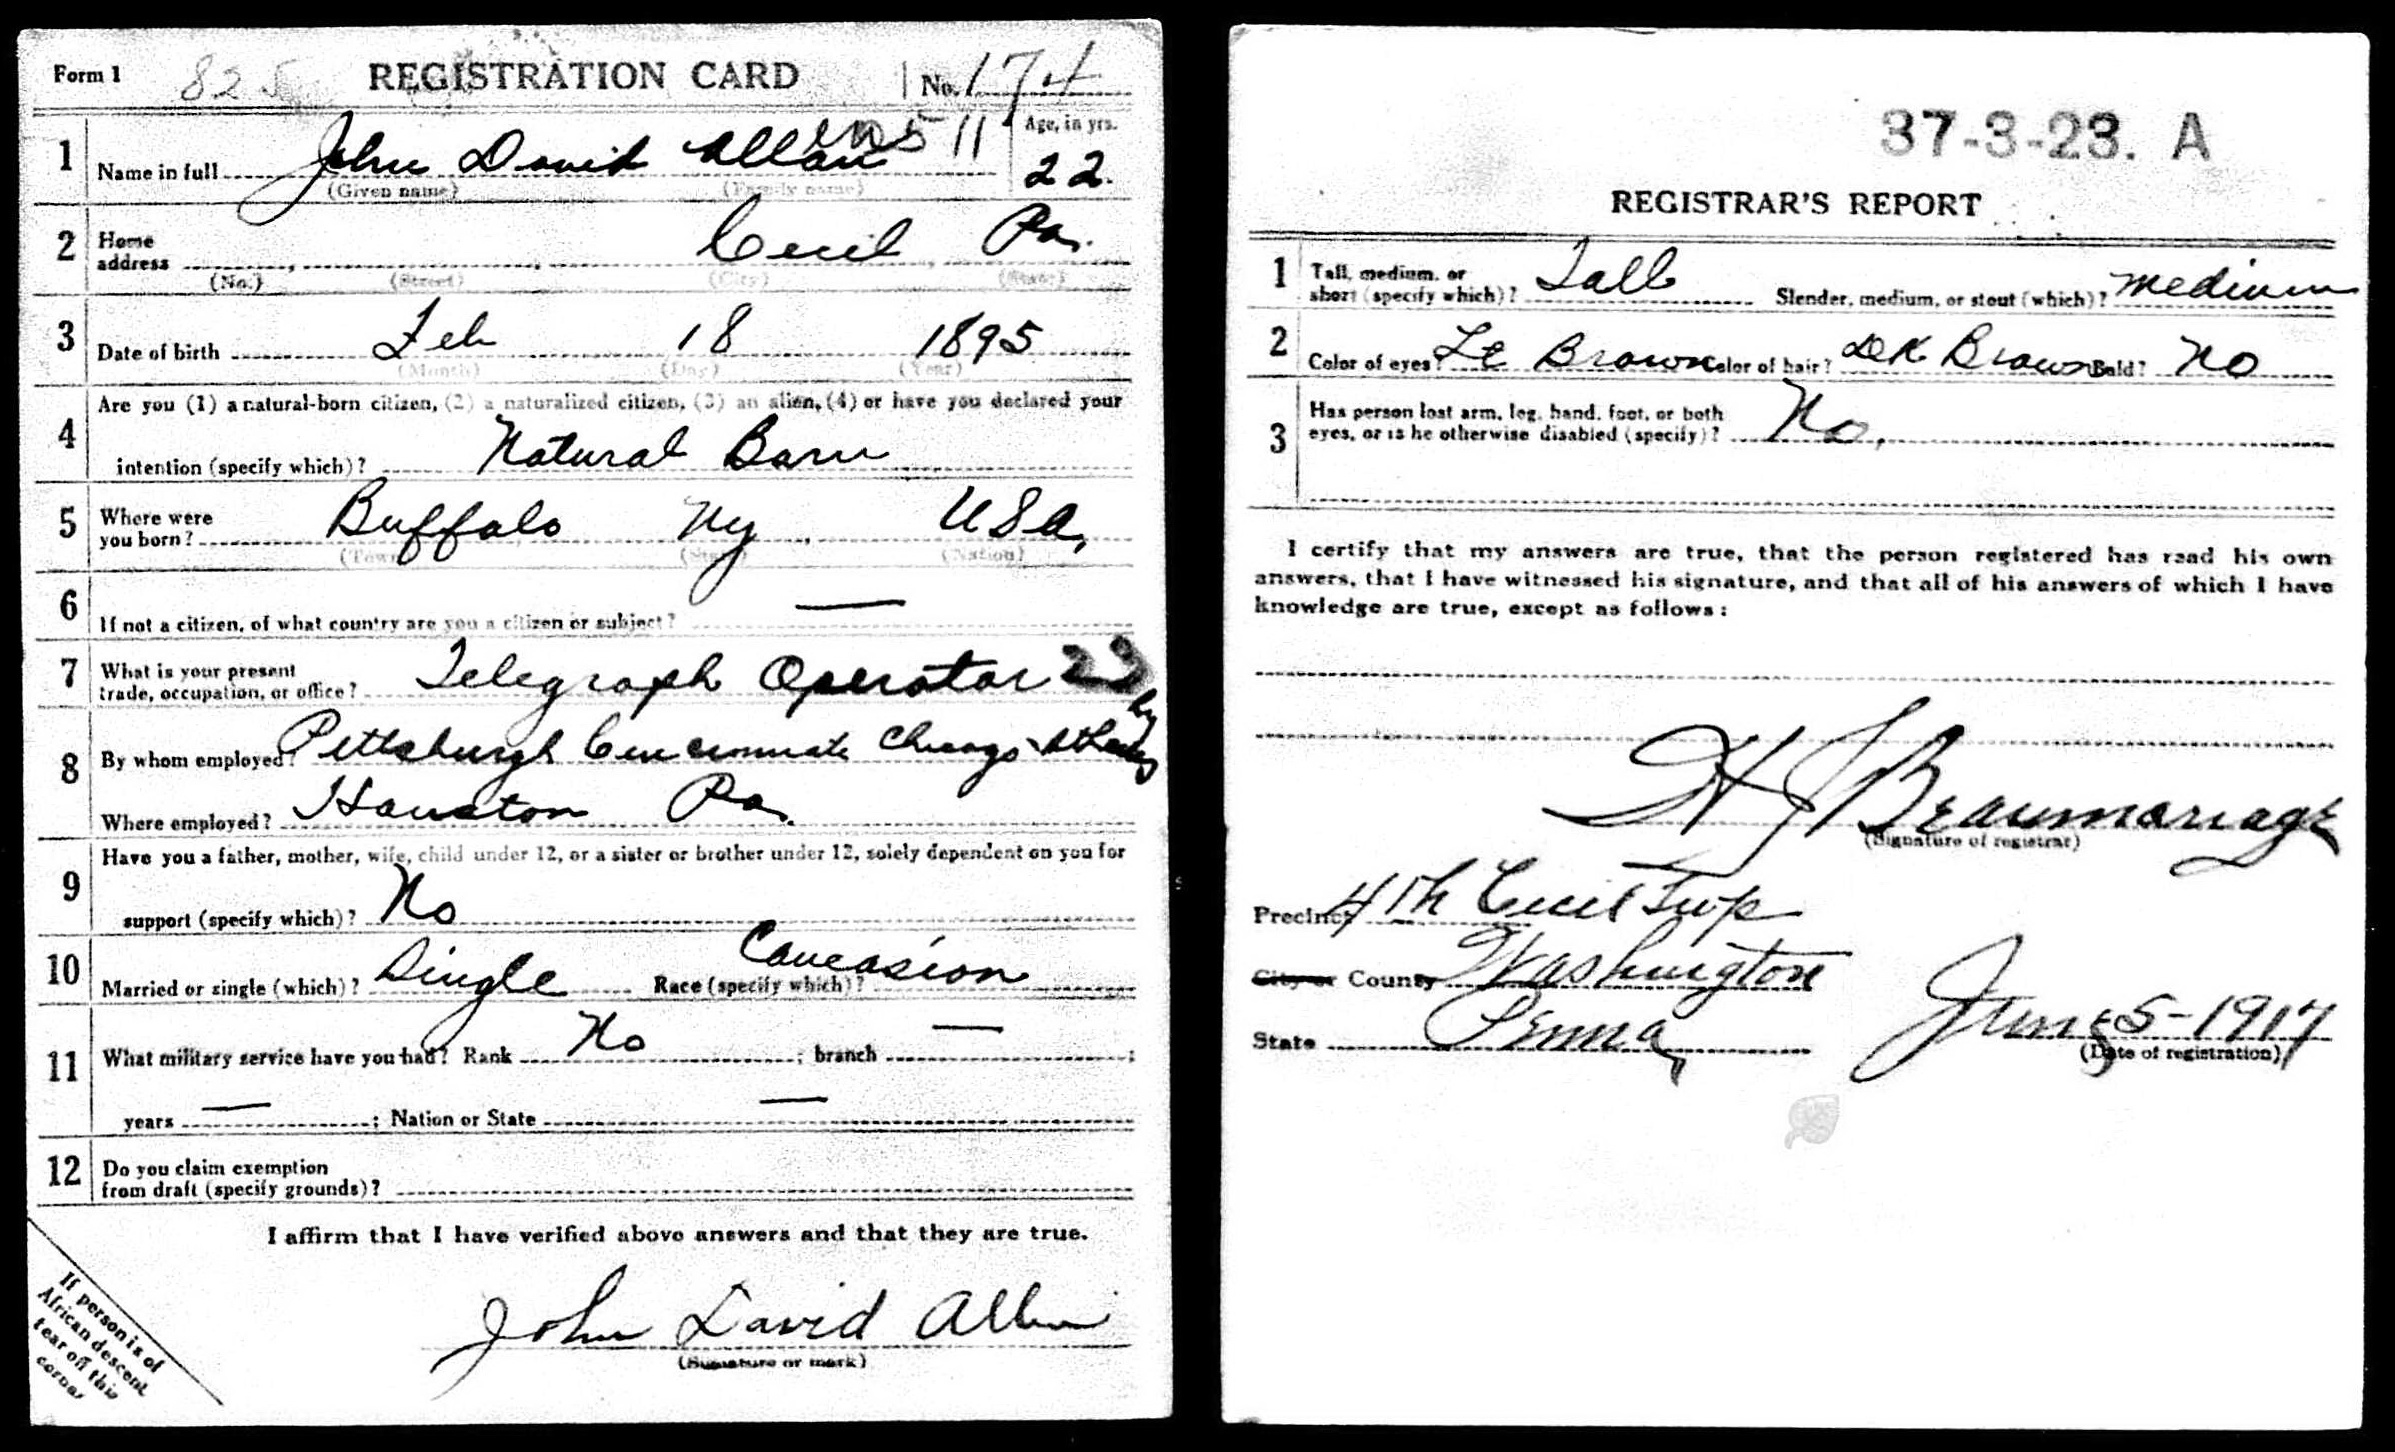 Form 1 825 REGISTRATION CARD No. 174
1 Name in full John David Allan 511 Age, in yrs. 22.
(Given name) (Family name)
2 Home address Cecil Pa.
(No.) (Street) (City) (State)
3 Date of birth Feb 18 1895
(Month) (Day) (Year)
4 Are you (1) a natural-born citizen, (2) a naturalized citizen, (3) an alien, (4) or have you declared your
intention (specify which)? Natural Born
5 Where were you born? Buffalo Ny USA,
(Town) (State) (Nation)
6 If not a citizen, of what country are you a citizen or subject? —
7 What is your present trade, occupation, or office? Telegraph Operator 23
8 By whom employed? Pittsburgh Cincinnati Chicago & St Louis Ry
Where employed? Houston Pa.
9 Have you a father, mother, wife, child under 12, or a sister or brother under 12, solely dependent on you for
support (specify which)? No
10 Married or single (which)? Single Race (specify which)? Caucasion
11 What military service have you had? Rank No ; branch — ;
years — ; Nation or State —
12 Do you claim exemption
from draft (specify grounds)?
I affirm that I have verified above answers and that they are true.
John David Allen
(Signature or mark)
If person is of
African descent
tear off this
corner
37-3-23. A
REGISTRAR'S REPORT
1 Tall, medium, or short (specify which)? Tall Slender, medium, or stout (which)? medium
2 Color of eyes? Lt Brown Color of hair? DK Brown Bald? No
3 Has person lost arm, leg, hand, foot, or both
eyes, or is he otherwise disabled (specify)? No,
I certify that my answers are true, that the person registered has read his own
answers, that I have witnessed his signature, and that all of his answers of which I have
knowledge are true, except as follows:
H J Beaumariage
(Signature of registrar)
Precinct 4th Cecil Twp
City or County Washington
State Penna, June 5-1917
(Date of registration)